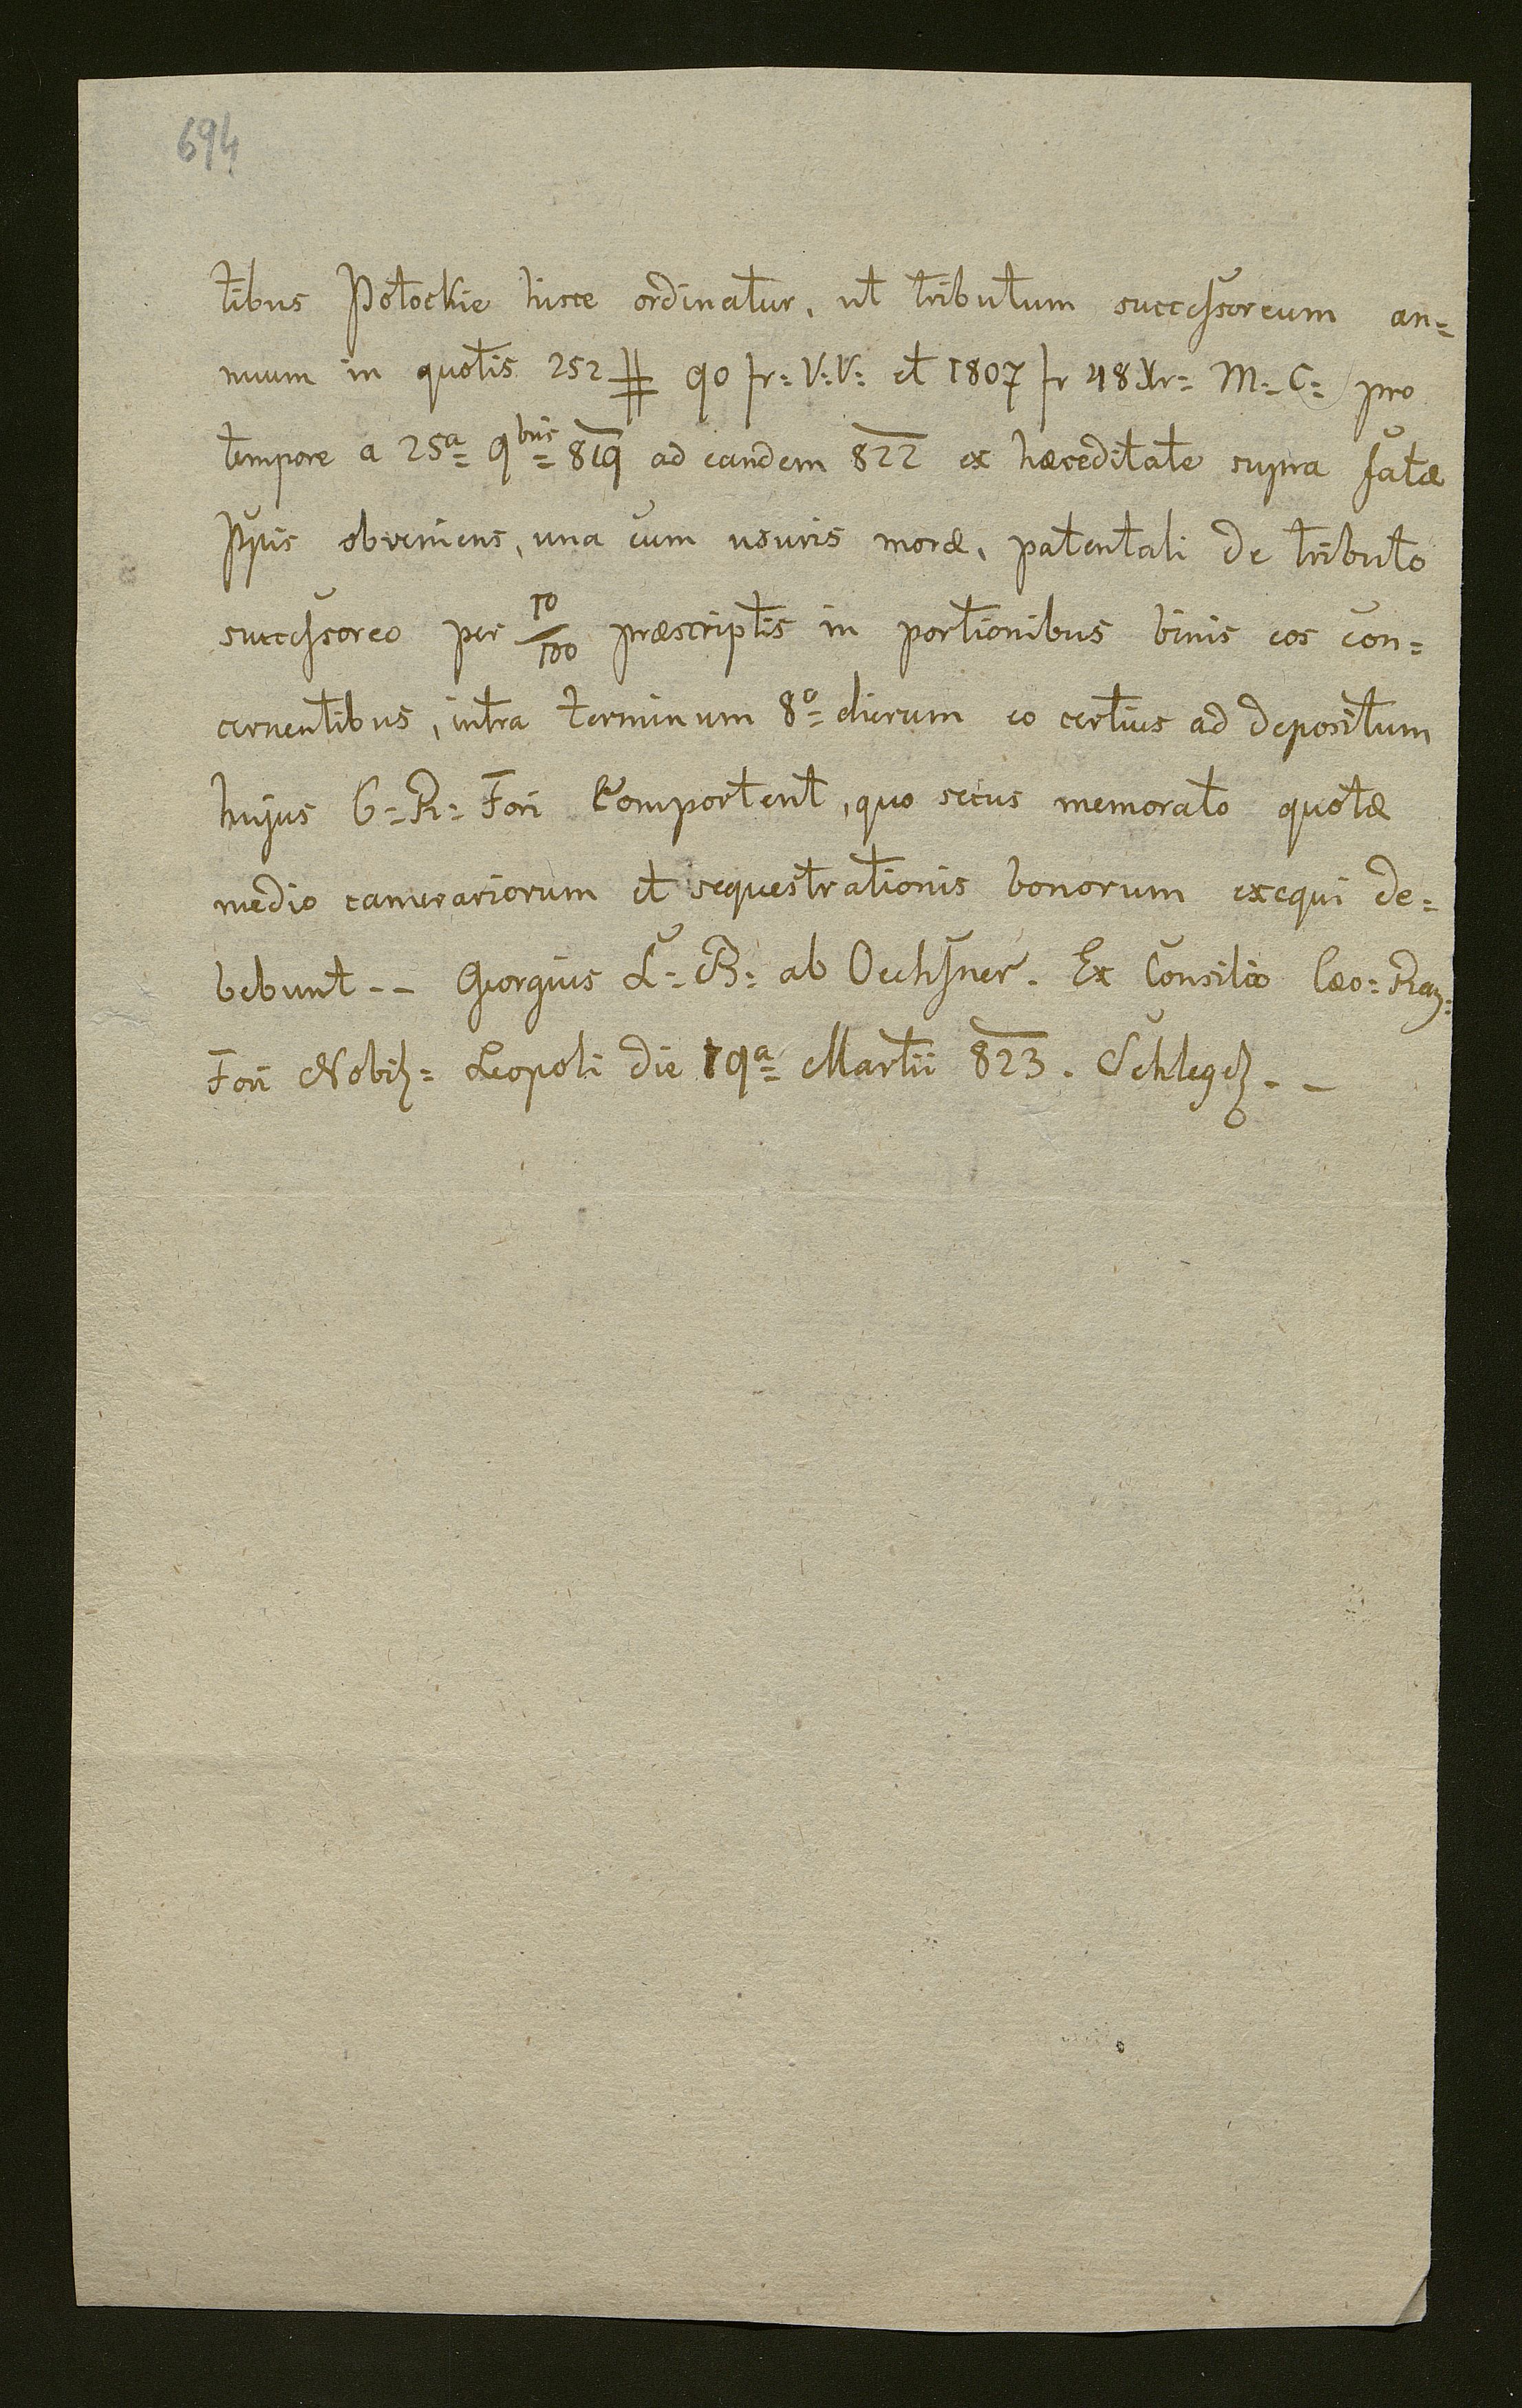 694
tibus Potockie hisce ordinatur, ut tributum successoreum an=
nuum in quotis 252 # 90 fr: V: V: et 1807 fr 48 Xr= M= C= pro
tempore a 25ª 9bris 819 ad eandem 822 ex hæreditate supra fatæ
Ppis obveniens, una cum usuris moræ, patentali de tributo
successoreo per 10/100 præscriptis in portionibus binis eos con=
cernentibus, intra terminum 8º dierum eo certius ad depositum
hujus C= R= Fori Comportent, quo secus memorato quotæ
medio camerariorum et sequestrationis bonorum exequi de=
bebunt -- Georgius L= B= ab Oechsner. Ex Consilio Cæo= Reg:
Fori Nobil= Leopoli die 19ª Martii 823. Schlegel --